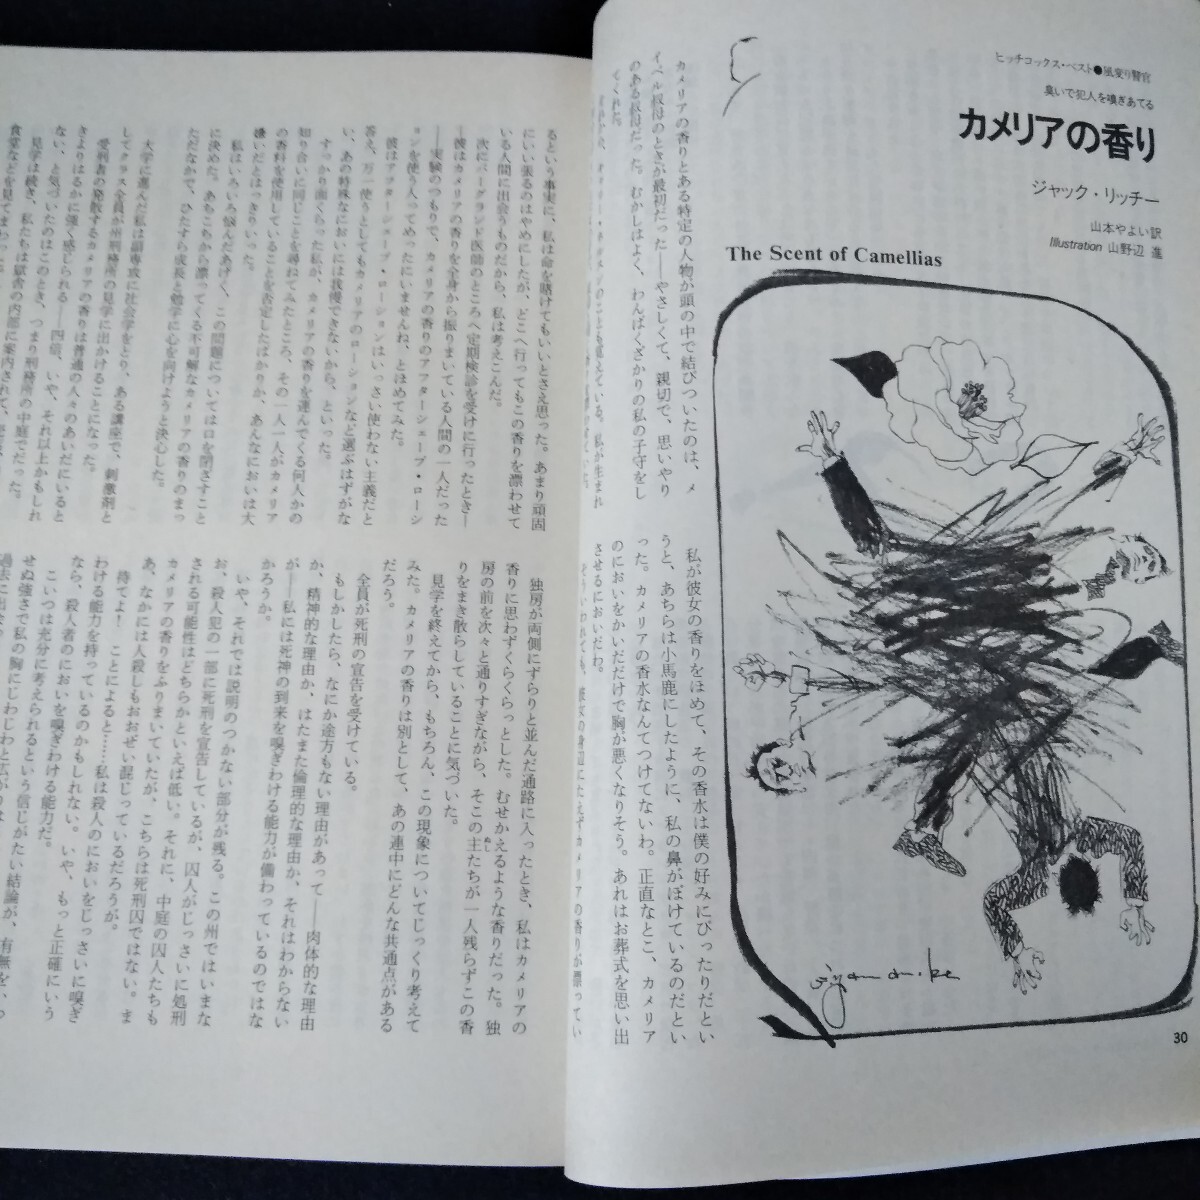 ヒッチコックス・ベスト●風変り警官
臭いで犯人を嗅ぎあてる
カメリアの香り
ジャック・リッチー
山本やよい訳
Illustration 山野辺 進
The Scent of Camellias
カメリアの香りとある特定の人物が頭の中で結びついたのは、メ
イベル叔母のときが最初だった——やさしくて、親切で、思いやり
のある叔母だった。むかしはよく、わんぱくざかりの私の子守をし
てくれた。
私が彼女の香りをほめて、その香水は僕の好みにぴったりだとい
うと、あちらは小馬鹿にしたように、私の鼻がぼけているのだとい
った。カメリアの香水なんてつけてないわ。正直なとこ、カメリア
のにおいをかいだだけで胸が悪くなりそう。あれはお葬式を思い出
させるにおいだわ。
30
るという事実に、私は命を賭けてもいいとさえ思った。あまり頑固
にいい張るのはやめにしたが、どこへ行ってもこの香りを漂わせて
いる人間に出会うものだから、私は考えこんだ。
次にバーグランド医師のところへ定期検診を受けに行ったとき—
—彼はカメリアの香りを全身から振りまいている人間の一人だった
——実験のつもりで、カメリアの香りのアフターシェーブ・ローシ
ョンを使う人ってめったにいませんね、とほめてみた。
彼はアフターシェーブ・ローションはいっさい使わない主義だと
答え、万一使うとしてもカメリアのローションなど選ぶはずがな
い、あの特殊なにおいには我慢できないから、といった。
すっかり面くらった私が、カメリアの香りを運んでくる何人かの
知り合いに同じことを尋ねてみたところ、その一人一人がカメリア
の香料を使用していることを否定したばかりか、あんなにおいは大
嫌いだとはっきりいった。
私はいろいろ悩んだあげく、この問題については口を閉ざすこと
に決めた。あちこちから漂ってくる不可解なカメリアの香りのまっ
ただなかで、ひたすら成長と勉学に心を向けようと決心した。
大学に進んだ私は副専攻に社会学をとり、ある講座で、刺激剤と
してクラス全員が州刑務所の見学に出かけることになった。
受刑者の発散するカメリアの香りは普通の人々のあいだにいると
きよりはるかに強く感じられる——四倍、いや、それ以上かもしれ
ない、と気づいたのはこのとき、つまり刑務所の中庭でだった。
見学は続き、私たちは獄舎の内部に案内されて、
独房が両側にずらりと並んだ通路に入ったとき、私はカメリアの
香りに思わずくらくらっとした。むせかえるような香りだった。独
房の前を次々と通りすぎながら、そこの主たちが一人残らずこの香
りをまき散らしていることに気づいた。
見学を終えてから、もちろん、この現象についてじっくり考えて
みた。カメリアの香りは別として、あの連中にどんな共通点がある
だろう。
全員が死刑の宣告を受けている。
もしかしたら、なにか途方もない理由があって——肉体的な理由
か、精神的な理由か、はたまた倫理的な理由か、それはわからない
が——私には死神の到来を嗅ぎわける能力が備わっているのではな
かろうか。
いや、それでは説明のつかない部分が残る。この州ではいまな
お、殺人犯の一部に死刑を宣告しているが、囚人がじっさいに処刑
される可能性はどちらかといえば低い。それに、中庭の囚人たちも
カメリアの香りをふりまいていたが、こちらは死刑囚ではない。ま
あ、なかには人殺しもおおぜい混じっているだろうが。
待てよ！ ことによると……私は殺人のにおいをじっさいに嗅ぎ
わける能力を持っているのかもしれない。いや、もっと正確にいう
なら、殺人者のにおいを嗅ぎわける能力だ。
こいつは充分に考えられるという信じがたい結論が、有無をいわ
せぬ強さで私の胸にじわじわと広がり